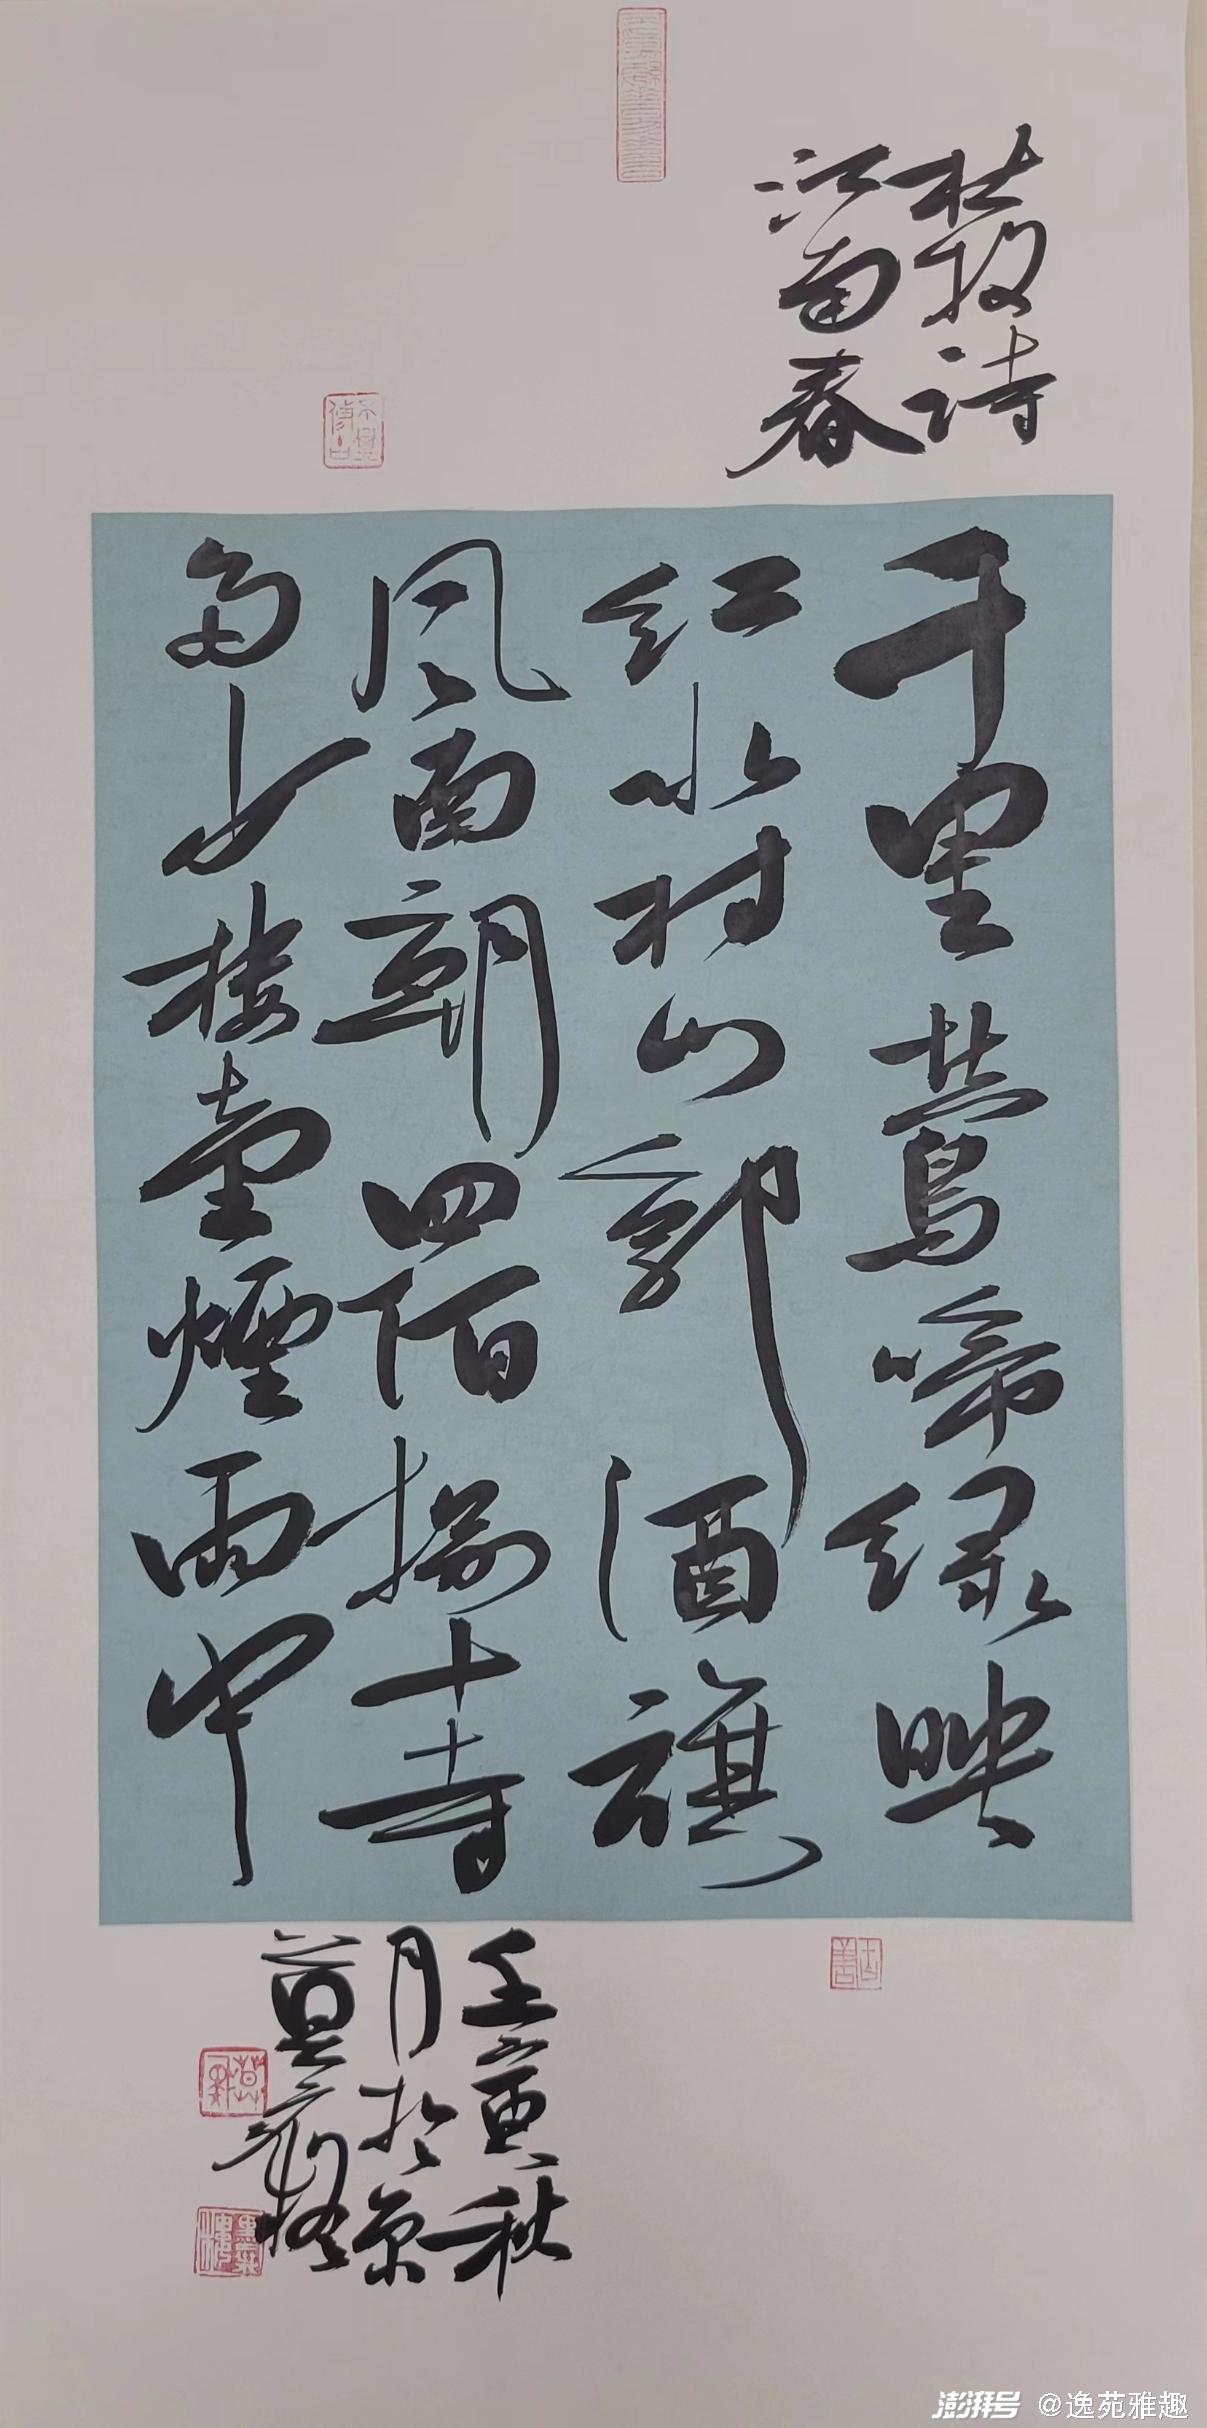 杜牧诗
江南春
千里鶯啼绿映
红水村山郭酒旗
风南朝四佰捌十寺
多少楼臺煙雨中
壬寅秋
月於京
莫
澎湃号 @逸苑雅趣